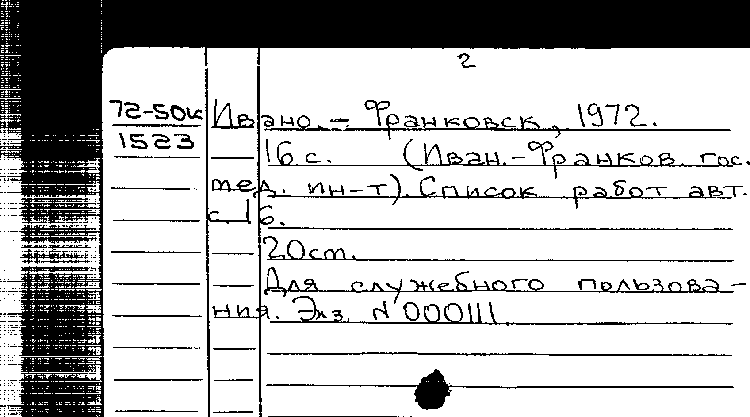 2
72-50к Ивано-Франковск, 1972.
1523
16 с. (Иван.-Франков. гос.
мед. ин-т). Список работ авт.
с. 16.
20 cm.
Для служебного пользова-
ния. Экз. N 000111.